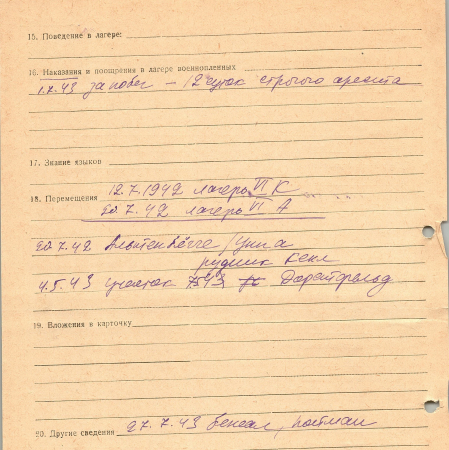 15. Поведение в лагере:
16. Наказания и поощрения в лагере военнопленных
1.2.43 за побег — 12 суток строгого ареста
17. Знание языков
18. Перемещения 12.7.1942 лагерь VI К
20.7.42 лагерь VI А
20.7.42 Альтенбёгге /Унна
рудник
4.5.43 участок Дорстфельд
19. Вложения в карточку
20. Другие сведения 27.7.43